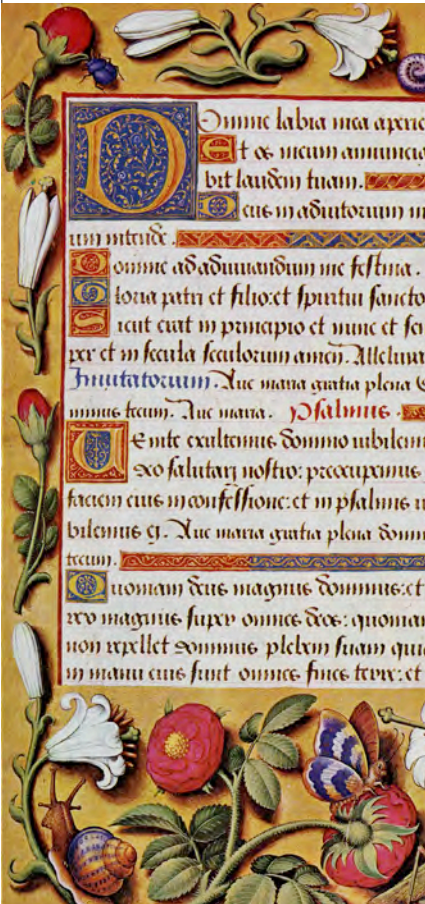 Domine labia mea aperie
Et os meum annuncia
bit laudem tuam.
Deus in adiutorium m
um intende.
Domine ad adiuuandum me festina.
Gloria patri et filio: et spiritui sancto
Sicut erat in principio et nunc et sem
per et in secula seculorum amen. Alleluia
Inuitatorium. Aue maria gratia plena
minus tecum. Aue maria. Psalmus.
Venite exultemus domino iubilem
deo salutari nostro: preocupemus
faciem eius in confessione: et in psalmis iu
bilemus ei. Aue maria gratia plena domin
tecum.
Quoniam deus magnus dominus: et
rex magnus super omnes deos: quoniam
non repellet dominus plebem suam quia
in manu eius sunt omnes fines terre: et